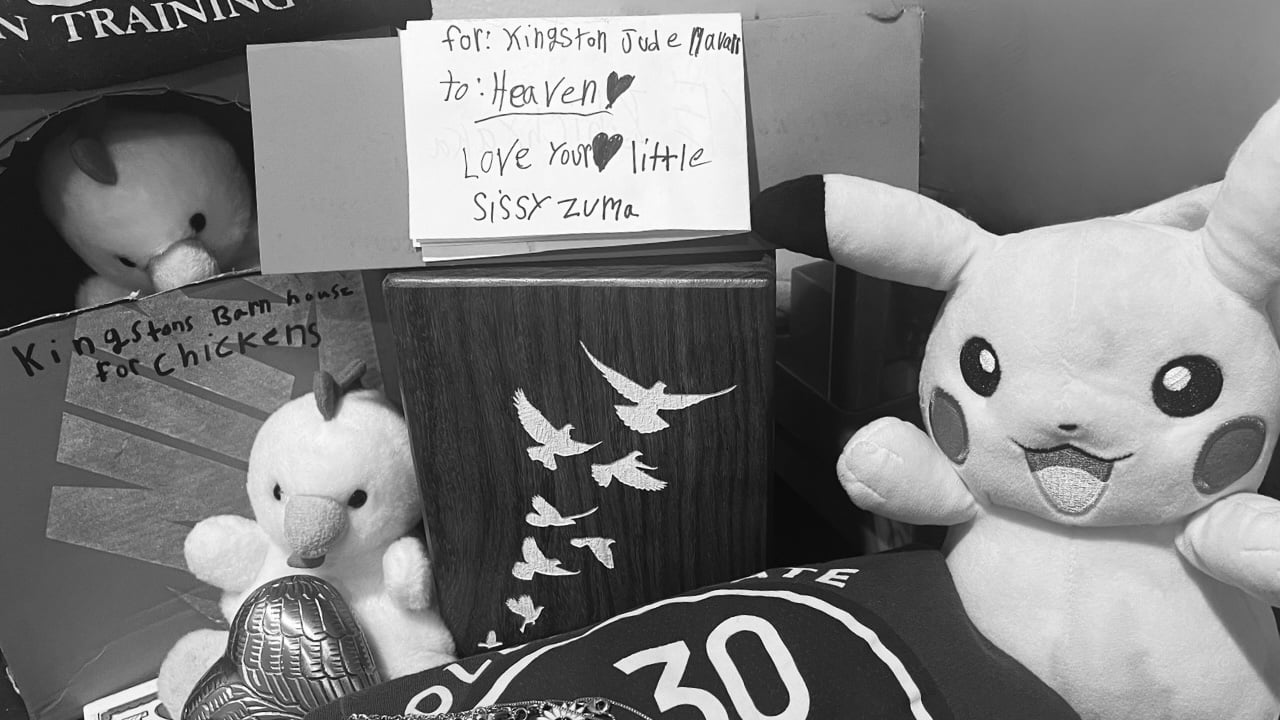 N TRAINING
for: Kingston Jude
to: Heaven
Love Your little
Sissy Zuma
Kingstons Barn house
for Chickens
30